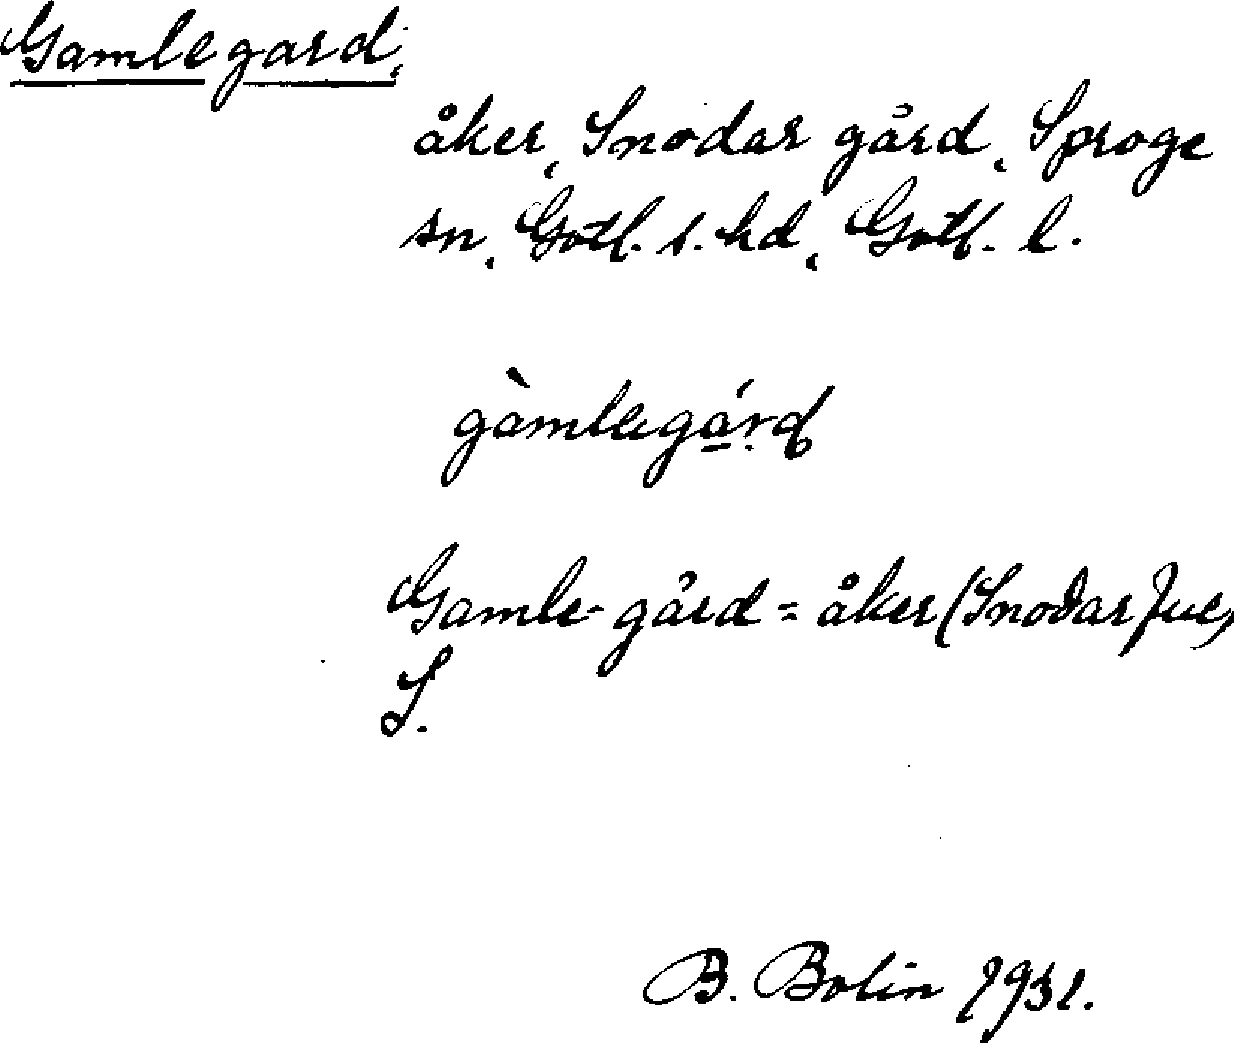 Gamlegard,
åker, Snodar gård, Sproge
sn, Gotl. s. hd, Gotl. l.
gàmlegárd
Gamle-gård = åker (Snodar
S.
B. Bolin 1931.